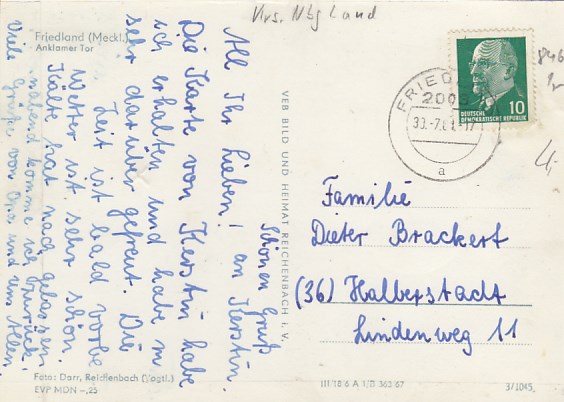 Krs. Nbg Land
Friedland (Meckl.)
Anklamer Tor
All Ihr Lieben!
Die Karte von Kerstin habe
ich erhalten und habe m
sehr darüber gefreut. Die
Zeit ist bald vorbe
Wetter ist sehr schön.
Kälte hat nach gelassen
komme ich zurück.
Viele Grüße von Oma und um Allen
Schönen Gruß
an Kerstin.
VEB BILD UND HEIMAT REICHENBACH I. V.
FRIED
200
a
10
DEUTSCHE
DEMOKRATISCHE REPUBLIK
846
4,-
Familie
Dieter Brackert
(36) Halberstadt
Lindenweg 11
Foto: Darr, Reichenbach (Vogtl.)
EVP MDN -,25
III/18/6 A 1/B 363/67
3/1045